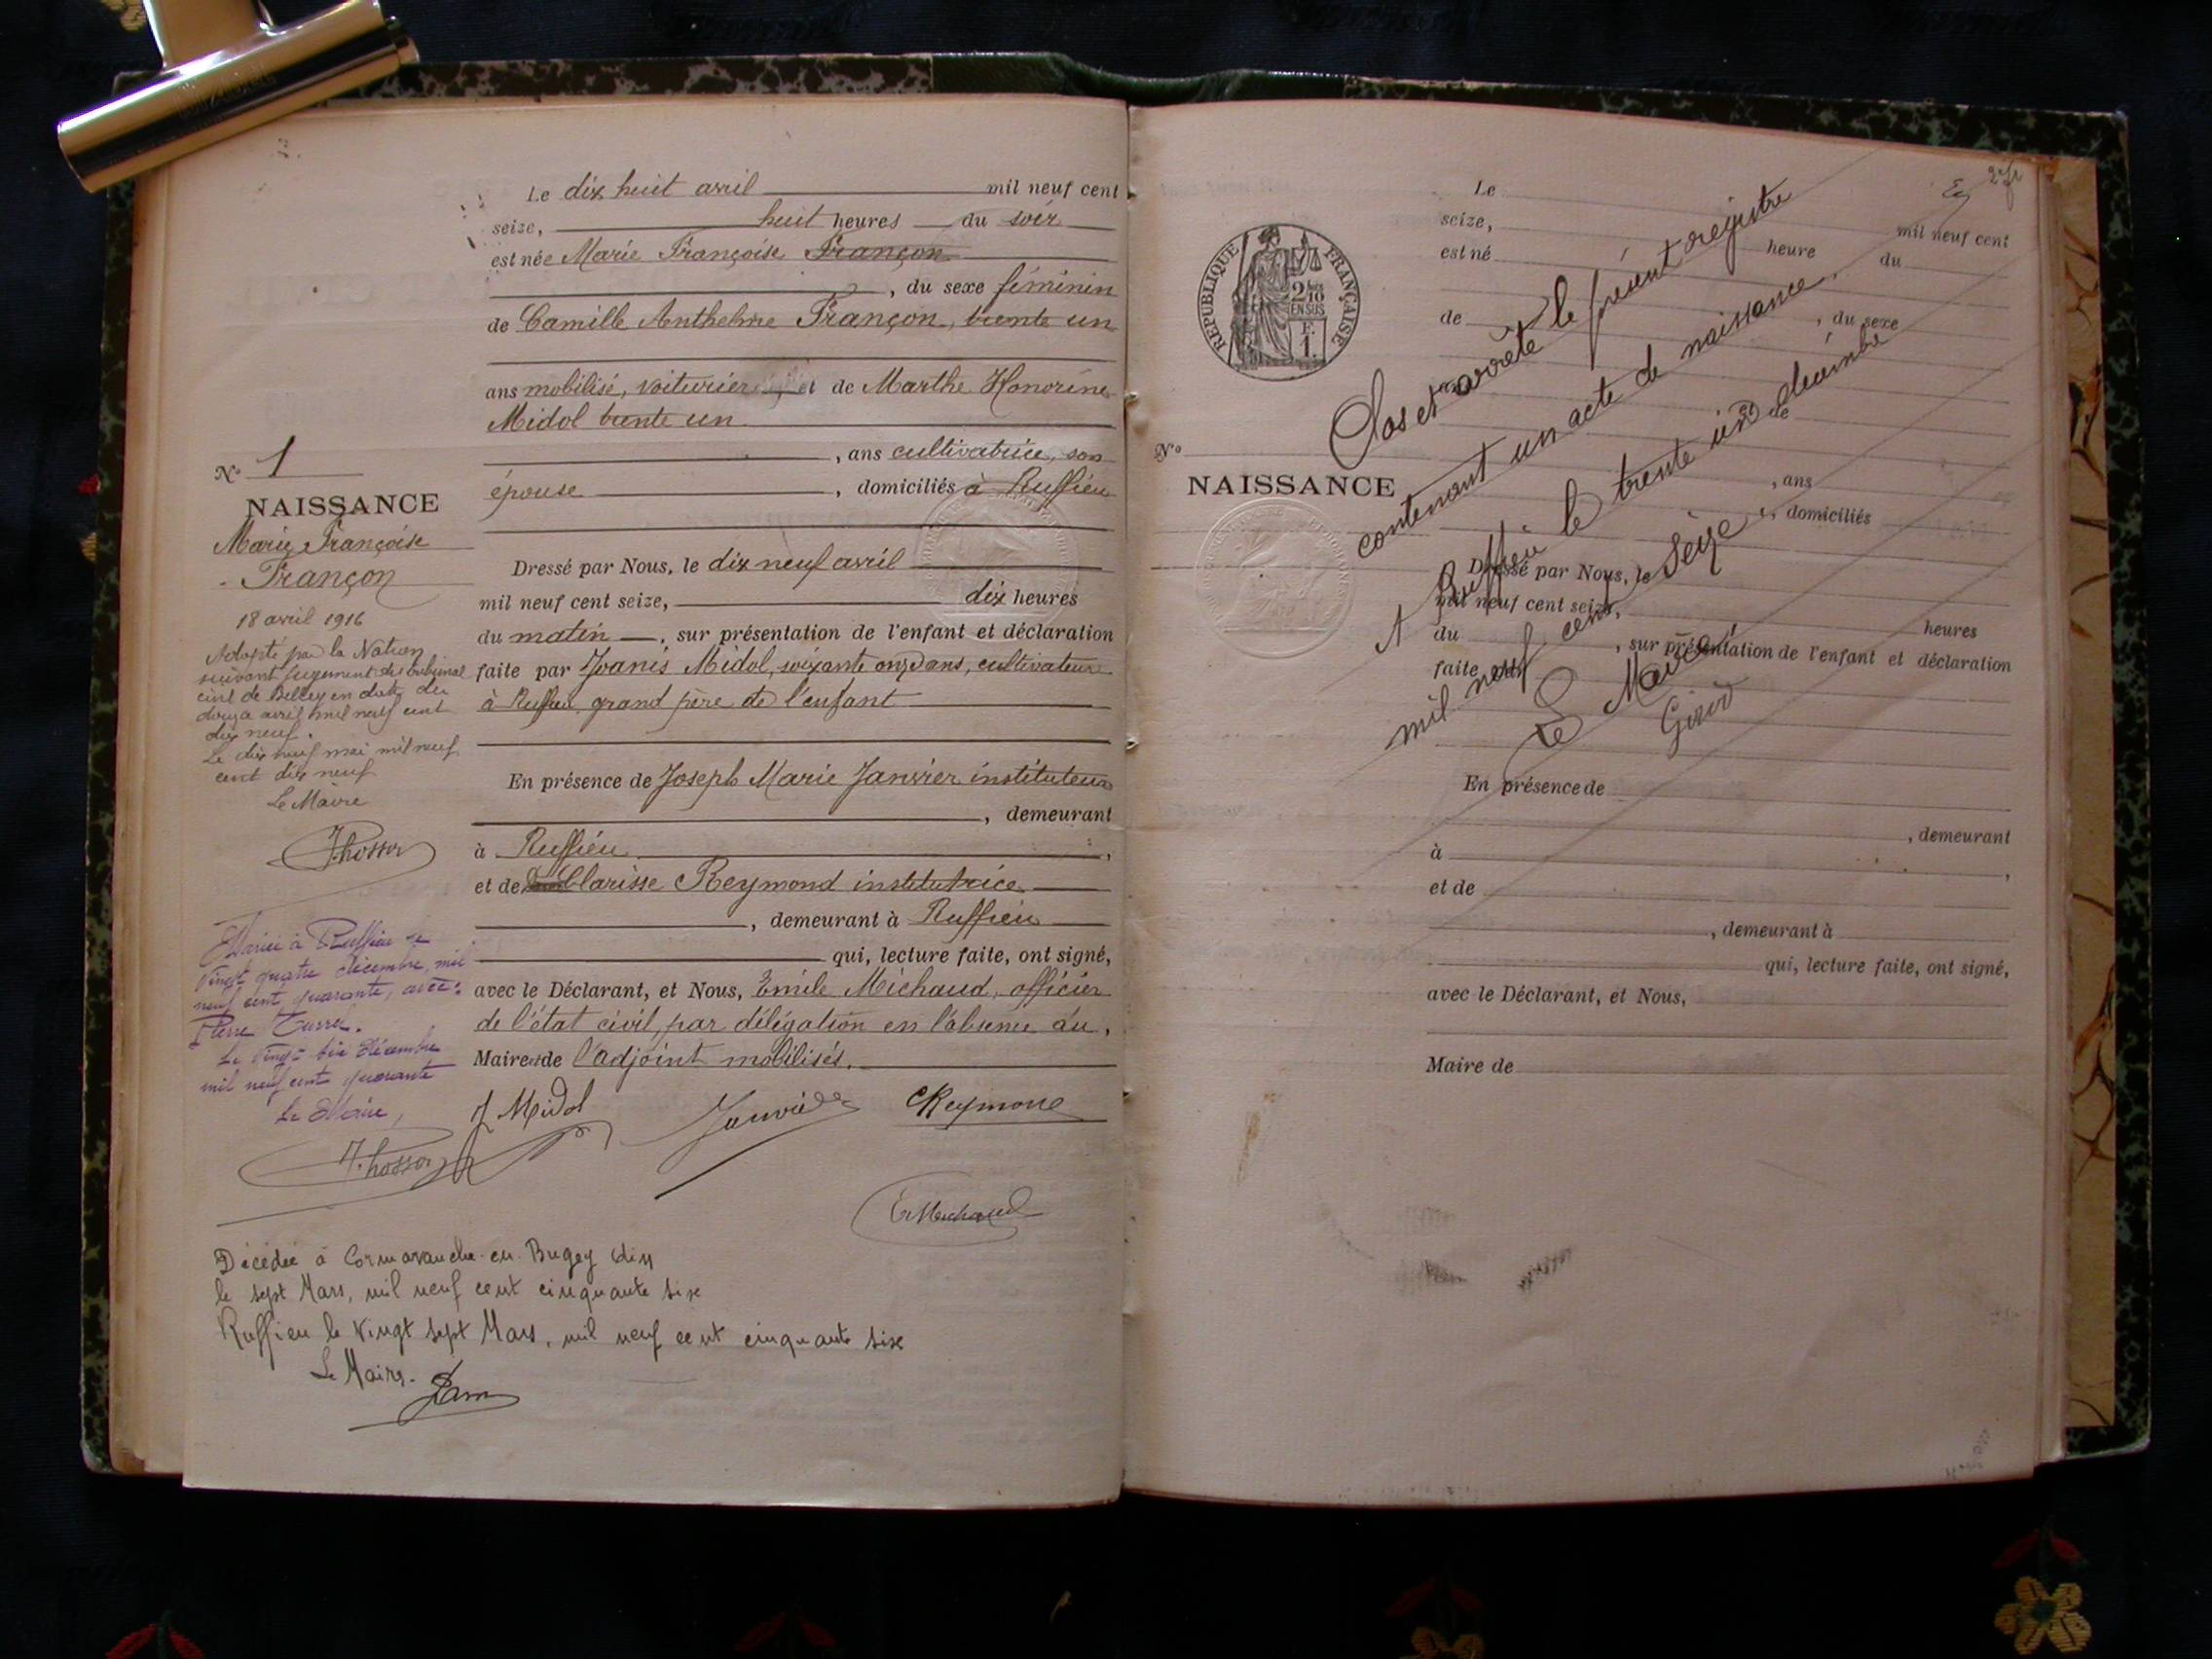 Le dix huit avril mil neuf cent
seize, huit heures du soir
est née Marie Françoise Françon
, du sexe féminin
de Camille Anthelme Françon, trente un
ans mobilisé, voiturier et de Marthe Honorine
Midol trente un
, ans cultivatrice, son
épouse , domiciliés à Ruffieu
Dressé par Nous, le dix neuf avril
mil neuf cent seize, dix heures
du matin , sur présentation de l'enfant et déclaration
faite par Joanis Midol, soixante onze ans, cultivateur
à Ruffieu grand père de l'enfant
En présence de Joseph Marie Janvier instituteur
, demeurant
à Ruffieu ,
et de Clarisse Reymond institutrice
, demeurant à Ruffieu
qui, lecture faite, ont signé,
avec le Déclarant, et Nous, Emile Michaud, officier
de l'état civil, par délégation en l'absence du
Maire de l'adjoint mobilisés.
J Midol Janvier CReymond
E Michaud
No 1
NAISSANCE
Marie Françoise
Françon
18 avril 1916
Adopté par la Nation
suivant jugement du tribunal
civil de Belley en date du
douze avril mil neuf cent
dix neuf.
Le dix neuf mai mil neuf
cent dix neuf
Le Maire
Mariée à Ruffieu le
vingt quatre décembre, mil
neuf cent quarante, avec:
Pierre
Le vingt six décembre
mil neuf cent quarante
Le Maire,
Décédée à Cormaranche-en-Bugey (Ain)
le sept Mars, mil neuf cent cinquante six
Ruffieu le vingt sept Mars, mil neuf cent cinquante six
Le Maire.
RÉPUBLIQUE FRANÇAISE
2/10
EN SUS
F.
1.
No
NAISSANCE
Le
mil neuf cent
seize, heure du
est né
, du sexe
de
et de
, ans
, domiciliés
Dressé par Nous, le
mil neuf cent seize,
du heures
, sur présentation de l'enfant et déclaration
faite par
En présence de
, demeurant
à ,
et de
, demeurant à
qui, lecture faite, ont signé,
avec le Déclarant, et Nous,
Maire de
Clos et arrêté le présent registre
contenant un acte de naissance.
A Ruffieu le trente un décembre
mil neuf cent seize.
Le Maire